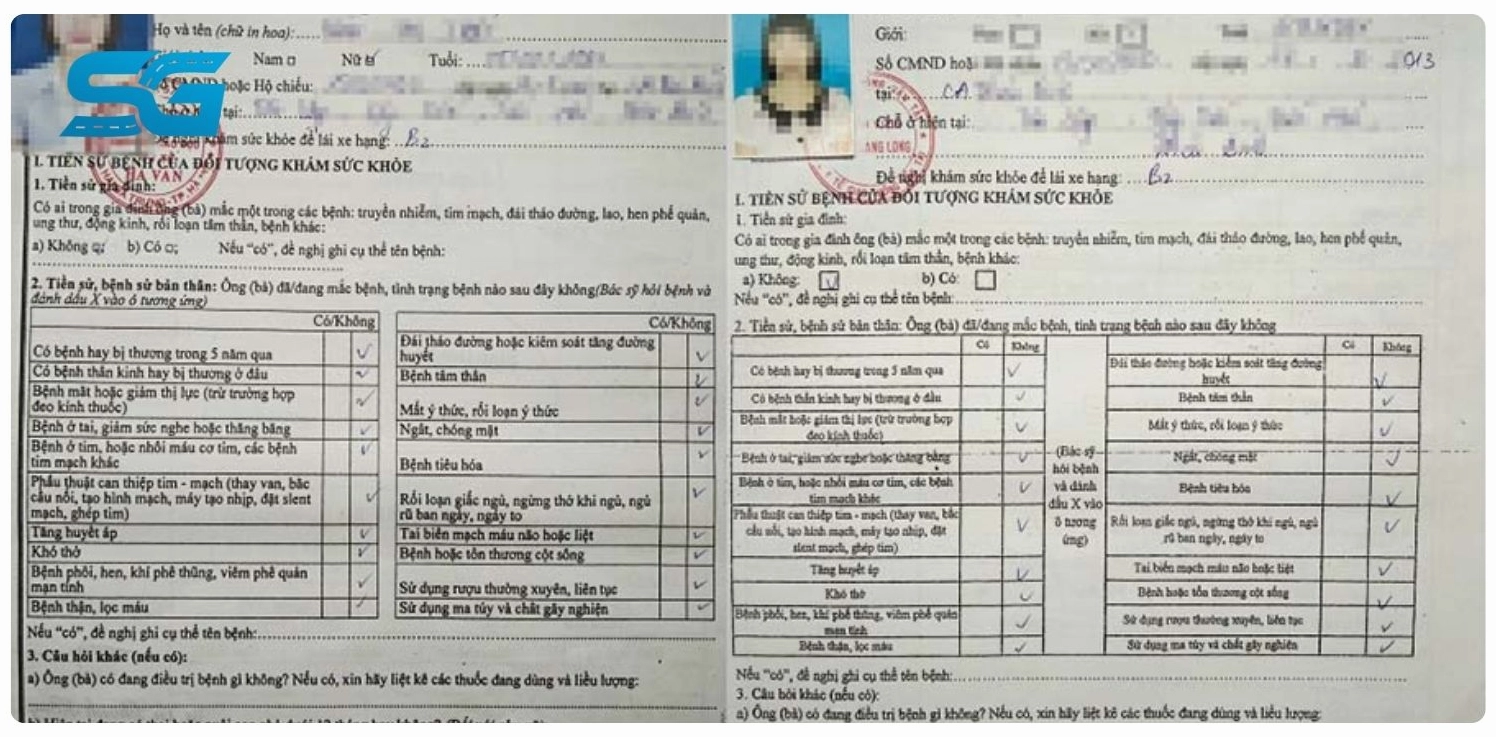 SG
Họ và tên (chữ in hoa):
Nam Nữ Tuổi:
CMND hoặc Hộ chiếu:
tại:
khám sức khỏe để lái xe hạng: B2
I. TIỀN SỬ BỆNH CỦA ĐỐI TƯỢNG KHÁM SỨC KHỎE
HÀ VAN
1. Tiền sử gia đình:
Có ai trong gia đình ông (bà) mắc một trong các bệnh: truyền nhiễm, tim mạch, đái tháo đường, lao, hen phế quản,
ung thư, động kinh, rối loạn tâm thần, bệnh khác:
a) Không b) Có Nếu “có”, đề nghị ghi cụ thể tên bệnh:
2. Tiền sử, bệnh sử bản thân: Ông (bà) đã/đang mắc bệnh, tình trạng bệnh nào sau đây không(Bác sỹ hỏi bệnh và
đánh dấu X vào ô tương ứng)
Có/Không
Có bệnh hay bị thương trong 5 năm qua
Có bệnh thần kinh hay bị thương ở đầu
Bệnh mắt hoặc giảm thị lực (trừ trường hợp
đeo kính thuốc)
Bệnh ở tai, giảm sức nghe hoặc thăng bằng
Bệnh ở tim, hoặc nhồi máu cơ tim, các bệnh
tim mạch khác
Phẫu thuật can thiệp tim - mạch (thay van, bắc
cầu nối, tạo hình mạch, máy tạo nhịp, đặt slent
mạch, ghép tim)
Tăng huyết áp
Khó thở
Bệnh phổi, hen, khí phế thũng, viêm phế quản
mạn tính
Bệnh thận, lọc máu
Có/Không
Đái tháo đường hoặc kiểm soát tăng đường
huyết
Bệnh tâm thần
Mất ý thức, rối loạn ý thức
Ngất, chóng mặt
Bệnh tiêu hóa
Rối loạn giấc ngủ, ngừng thở khi ngủ, ngủ
rũ ban ngày, ngáy to
Tai biến mạch máu não hoặc liệt
Bệnh hoặc tổn thương cột sống
Sử dụng rượu thường xuyên, liên tục
Sử dụng ma túy và chất gây nghiện
Nếu “có”, đề nghị ghi cụ thể tên bệnh:
3. Câu hỏi khác (nếu có):
a) Ông (bà) có đang điều trị bệnh gì không? Nếu có, xin hãy liệt kê các thuốc đang dùng và liều lượng:
Giới:
Số CMND hoặ 013
tại: CA
Chỗ ở hiện tại:
ANG LONG
Đề nghị khám sức khỏe để lái xe hạng: B2
I. TIỀN SỬ BỆNH CỦA ĐỐI TƯỢNG KHÁM SỨC KHỎE
1. Tiền sử gia đình:
Có ai trong gia đình ông (bà) mắc một trong các bệnh: truyền nhiễm, tim mạch, đái tháo đường, lao, hen phế quản,
ung thư, động kinh, rối loạn tâm thần, bệnh khác:
a) Không: b) Có:
Nếu “có”, đề nghị ghi cụ thể tên bệnh:
2. Tiền sử, bệnh sử bản thân: Ông (bà) đã/đang mắc bệnh, tình trạng bệnh nào sau đây không
Có Không
Có bệnh hay bị thương trong 5 năm qua
Có bệnh thần kinh hay bị thương ở đầu
Bệnh mắt hoặc giảm thị lực (trừ trường hợp
đeo kính thuốc)
Bệnh ở tai, giảm sức nghe hoặc thăng bằng
Bệnh ở tim, hoặc nhồi máu cơ tim, các bệnh
tim mạch khác
Phẫu thuật can thiệp tim - mạch (thay van, bắc
cầu nối, tạo hình mạch, máy tạo nhịp, đặt
slent mạch, ghép tim)
Tăng huyết áp
Khó thở
Bệnh phổi, hen, khí phế thũng, viêm phế quản
mạn tính
Bệnh thận, lọc máu
(Bác sỹ
hỏi bệnh
và đánh
dấu X vào
ô tương
ứng)
Có Không
Đái tháo đường hoặc kiểm soát tăng đường
huyết
Bệnh tâm thần
Mất ý thức, rối loạn ý thức
Ngất, chóng mặt
Bệnh tiêu hóa
Rối loạn giấc ngủ, ngừng thở khi ngủ, ngủ
rũ ban ngày, ngáy to
Tai biến mạch máu não hoặc liệt
Bệnh hoặc tổn thương cột sống
Sử dụng rượu thường xuyên, liên tục
Sử dụng ma túy và chất gây nghiện
Nếu “có”, đề nghị ghi cụ thể tên bệnh:
3. Câu hỏi khác (nếu có):
a) Ông (bà) có đang điều trị bệnh gì không? Nếu có, xin hãy liệt kê các thuốc đang dùng và liều lượng: